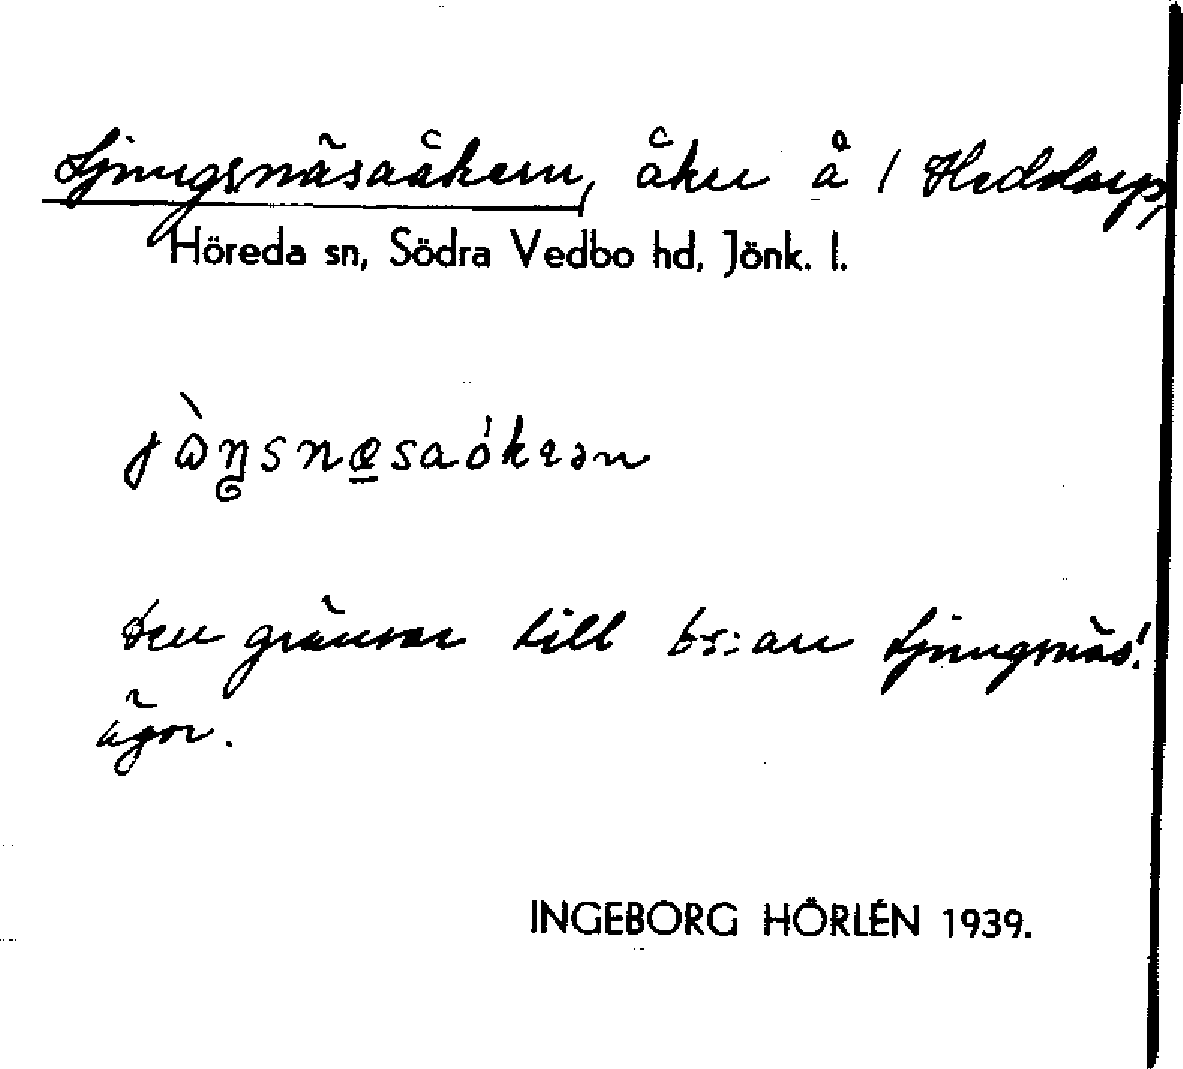 Ljungsnäsaåkern, åker å / Heddarp,
Höreda sn, Södra Vedbo hd, Jönk. l.
Den gränsar till bs:an Ljungsnäs!
ägor.
INGEBORG HÖRLÉN 1939.